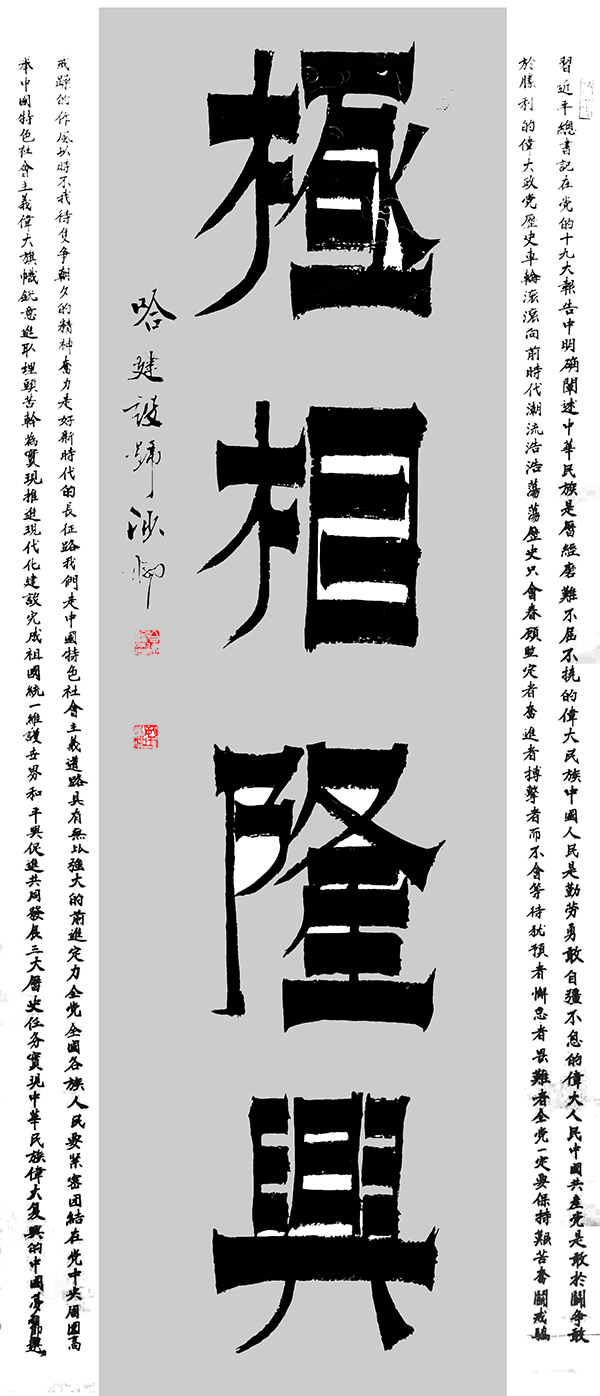 習近平總書記在党的十九大報告中明确闡述中華民族是曆經磨難不屈不撓的偉大民族中國人民是勤劳勇敢自彊不息的偉大人民中國共產党是敢於鬭争敢
於勝利的偉大政党歷史車輪滚滚向前時代潮流浩浩蕩蕩歷史只會眷顧坚定者奮進者搏擊者而不會等待犹預者懈怠者畏難者全党一定要保持艱苦奮鬭戒驕
極相隆興
哈建設號
戒躁的作風以時不我待隻争朝夕的精神奮力走好新時代的長征路我們走中國特色社會主義道路具有無比強大的前進定力全党全國各族人民要紧密团結在党中央周圍高
举中國特色社會主義偉大旗幟銳意進取埋頭苦幹為實現推進現代化建設完成祖國統一維護世界和平與促進共同發展三大曆史任务實現中華民族偉大复興的中國夢節選